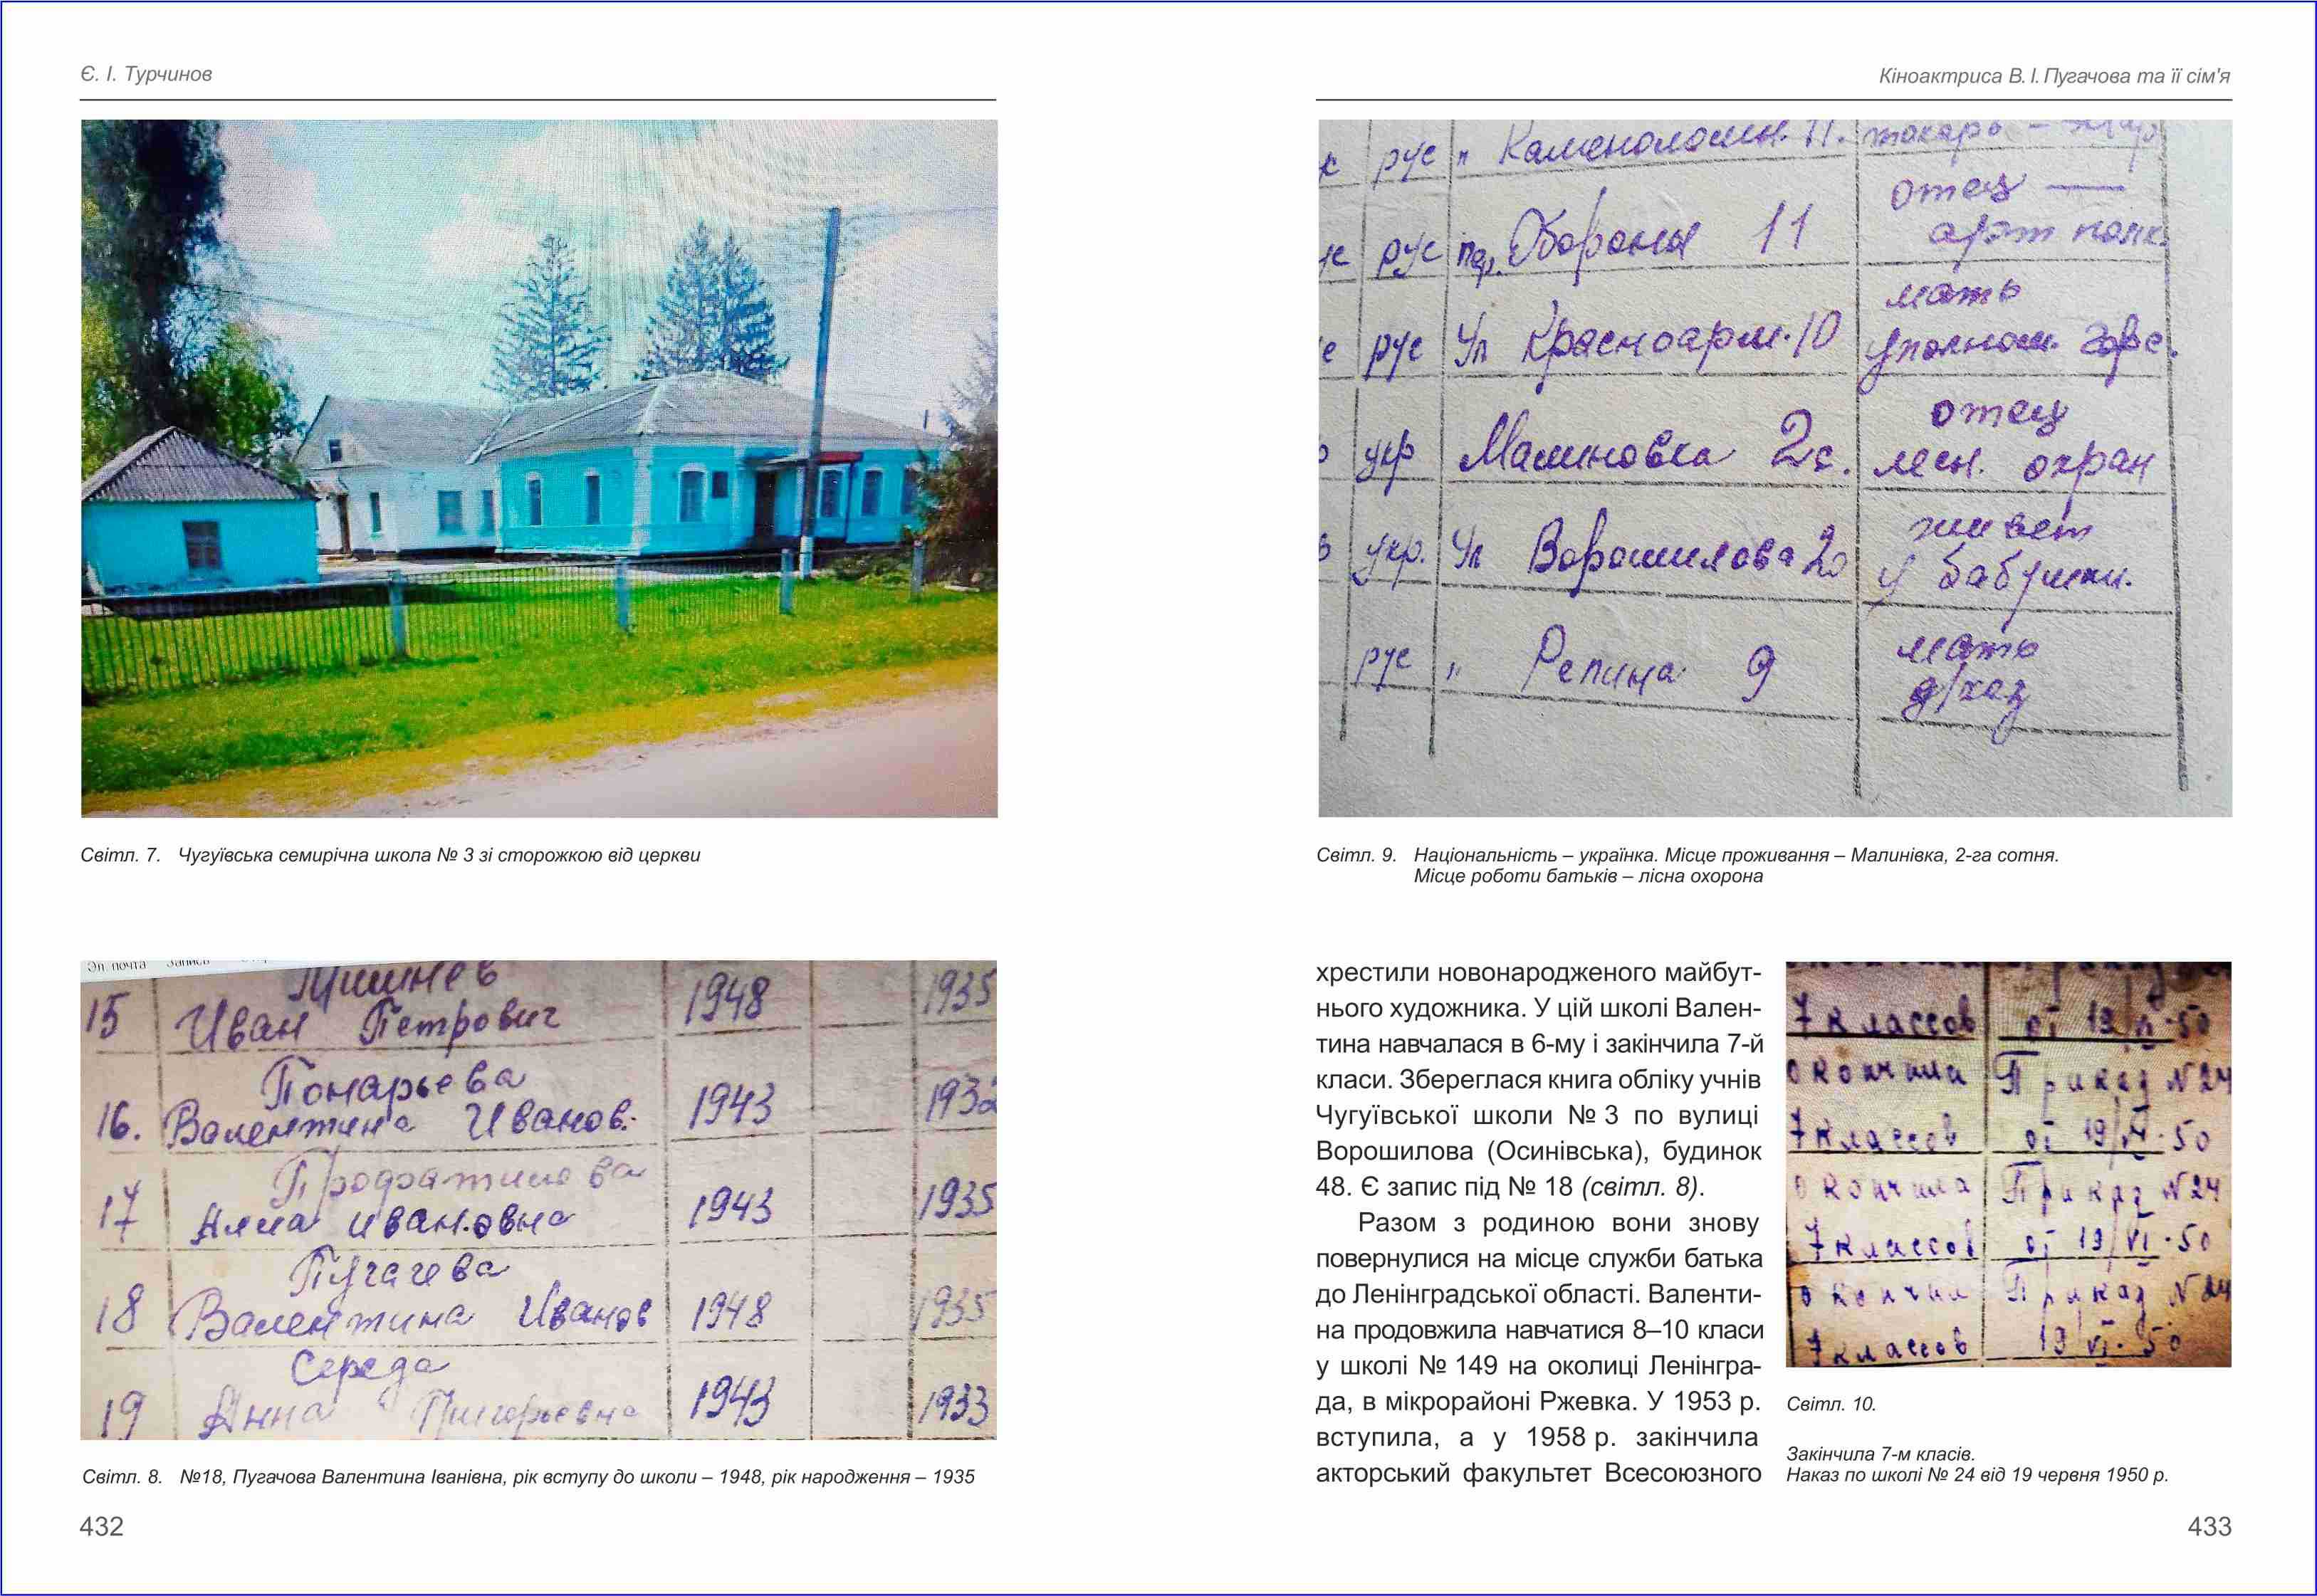 Є. І. Турчинов
Світл. 7. Чугуївська семирічна школа № 3 зі сторожкою від церкви
Эл. почта Запись
15 Иван Петрович 1948 1935
Понарьева
16. Валентина Иванов. 1943 1932
17 Алла Ивановна 1943 1935
Пугачева
18 Валентина Иванов 1948 1935
Середа
19 Анна Григорьевна 1943 1933
Світл. 8. №18, Пугачова Валентина Іванівна, рік вступу до школи – 1948, рік народження – 1935
432
Кіноактриса В. І. Пугачова та її сім'я
рус " Каменоломн. 11. токарь
отец —
рус пер. Обороны 11 арт полк.
мать
рус Ул Красноарм. 10 уполном.
отец
укр Малиновка 2с. лесн. охран
живет
укр. Ул Ворошилова 20 у бабушки.
мать
рус " Репина 9 д/хоз
Світл. 9. Національність – українка. Місце проживання – Малинівка, 2-га сотня.
Місце роботи батьків – лісна охорона
хрестили новонародженого майбут-
нього художника. У цій школі Вален-
тина навчалася в 6-му і закінчила 7-й
класи. Збереглася книга обліку учнів
Чугуївської школи № 3 по вулиці
Ворошилова (Осинівська), будинок
48. Є запис під № 18 (світл. 8).
Разом з родиною вони знову
повернулися на місце служби батька
до Ленінградської області. Валенти-
на продовжила навчатися 8–10 класи
у школі № 149 на околиці Ленінгра-
да, в мікрорайоні Ржевка. У 1953 р.
вступила, а у 1958 р. закінчила
акторський факультет Всесоюзного
7 классов от 19/VI·50
окончила Приказ №24
7 классов от 19/VI·50
окончила Приказ №24
7 классов от 19/VI·50
окончил Приказ №24
7 классов 19/VI·50
Світл. 10.
Закінчила 7-м класів.
Наказ по школі № 24 від 19 червня 1950 р.
433